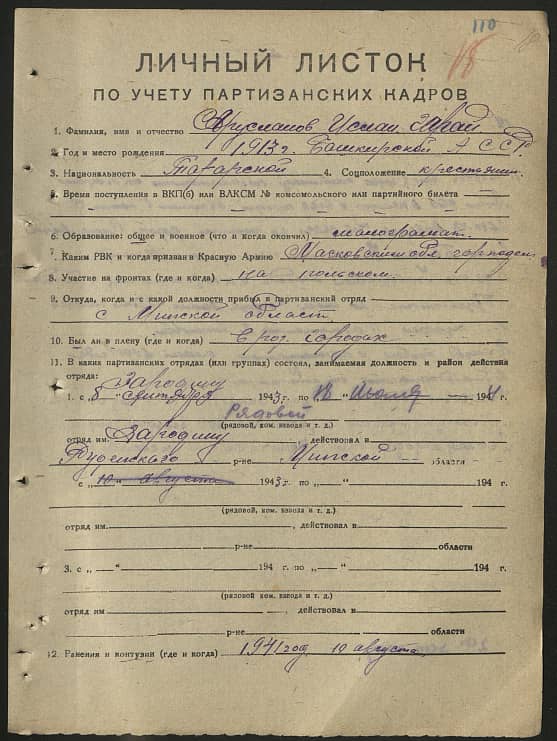 110
18
ЛИЧНЫЙ ЛИСТОК
ПО УЧЕТУ ПАРТИЗАНСКИХ КАДРОВ
1. Фамилия, имя и отчество Аруслапов Ислам
2. Год и место рождения 1913 г. Башкирской АССР
3. Национальность Татарской 4. Соцположение крестьянин
5. Время поступления в ВКП(б) или ВЛКСМ № комсомольского или партийного билета
6. Образование: общее и военное (что и когда окончил) малограмат.
7. Каким РВК и когда призван в Красную Армию Масковским обл.
8. Участие на фронтах (где и когда) на польском.
9. Откуда, когда и с какой должности прибыл в партизанский отряд
с Минской област
10. Был ли в плену (где и когда) в раз. городах
11. В каких партизанских отрядах (или группах) состоял, занимаемая должность и район действия
отряда:
1. с „ 8 " сентября 1943 г. по „ 18 " Июля 1944 г.
Рядовой
(рядовой, ком. взвода и т. д.)
отряд им. , действовал в
р-не Минской области
с „ 10 " августа 1943 г. по „ " 194 г.
(рядовой, ком. взвода и т. д.)
отряд им. , действовал в
р-не области
3. с „ " 194 г. по „ " 194 г.
(рядовой, ком. взвода и т. д.)
отряд им. , действовал в
р-не области
12. Ранения и контузии (где и когда) 1941 год 10 августа.